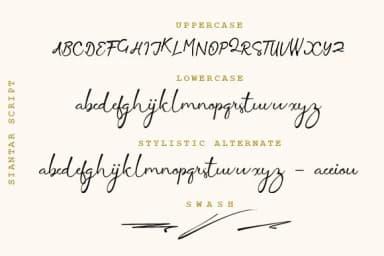 UPPERCASE
ABCDEFGHIJKLMNOPQRSTUVWXYZ
LOWERCASE
abcdefghijklmnopqrstuvwxyz
STYLISTIC ALTERNATE
abcdefghijklmnopqrstuvwxyz - aeeiou
SWASH
SIANTAR SCRIPT